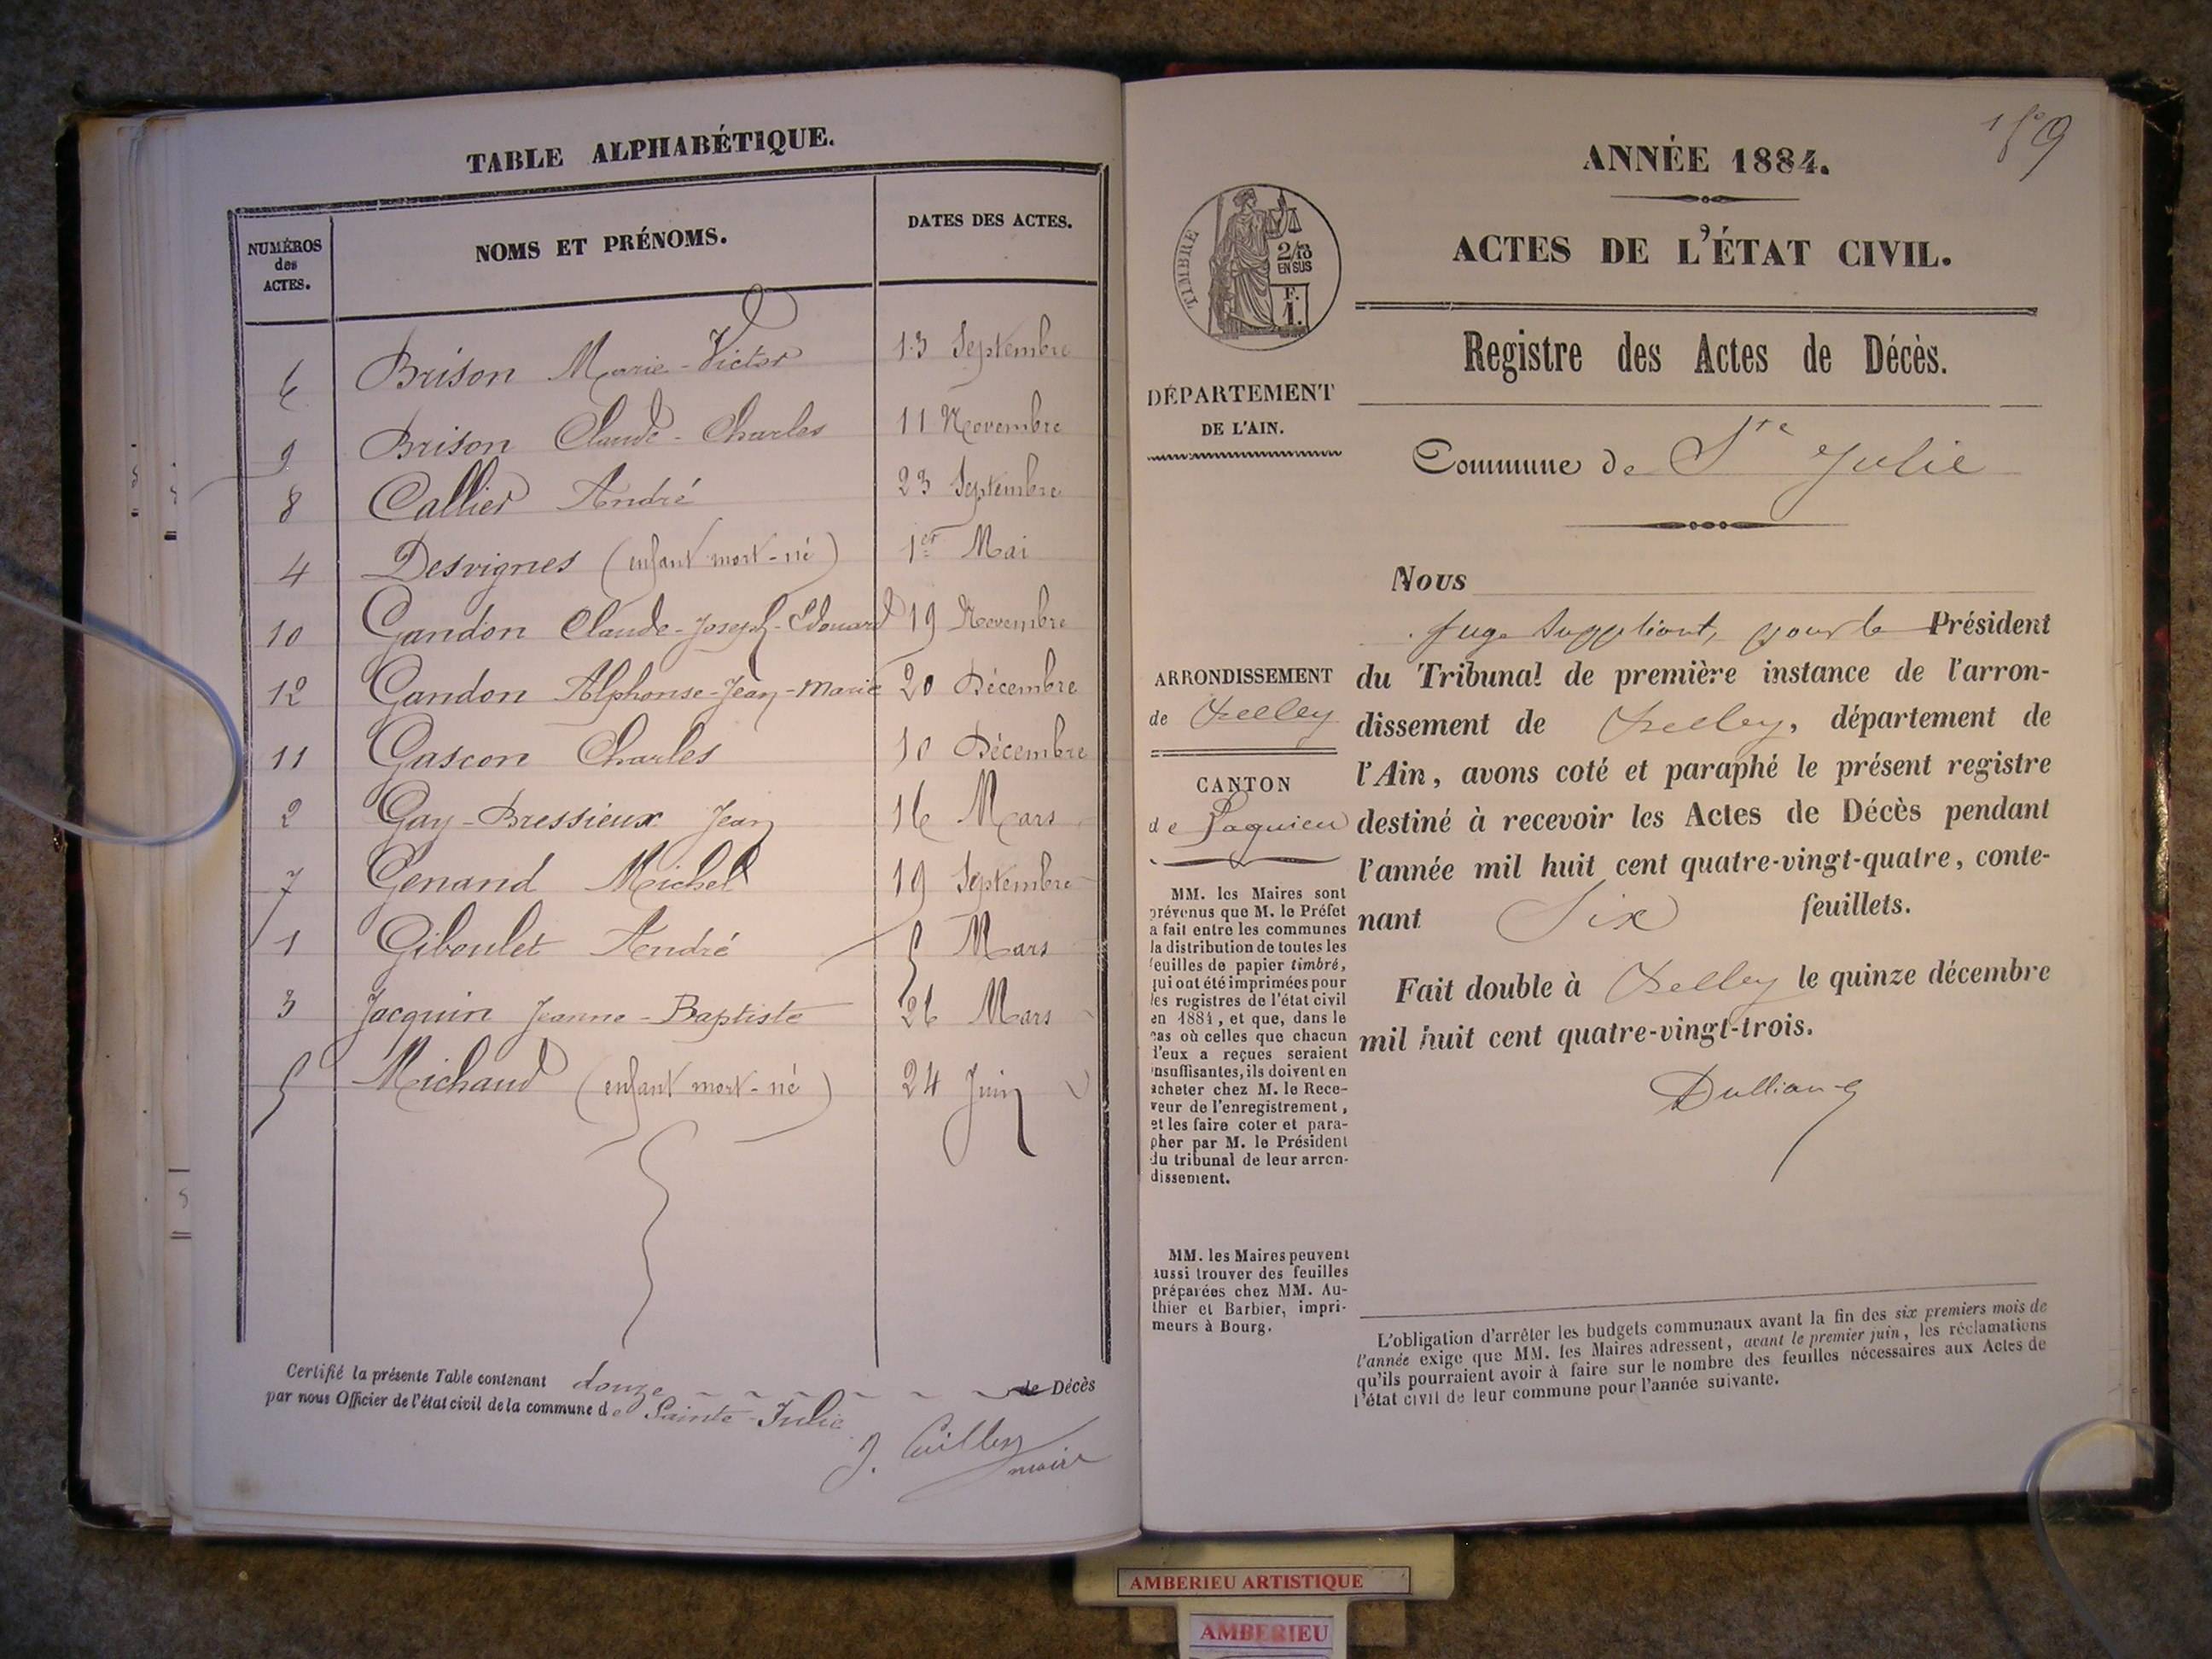 TABLE ALPHABÉTIQUE.
NUMÉROS
des
ACTES.
NOMS ET PRÉNOMS.
DATES DES ACTES.
6 Brison Marie-Victor 13 Septembre
9 Brison Claude-Charles 11 Novembre
8 Callier André 23 Septembre
4 Desvignes (enfant mort-né) 1er Mai
10 Gandon Claude-Joseph-Edouard 19 Novembre
12 Gandon Alphonse-Jean-Marie 20 Décembre
11 Gascon Charles 10 Décembre
2 Gay-Bressieux Jean 16 Mars
7 Genand Michel 19 Septembre
1 Giboulet André 5 Mars
3 Jacquin Jeanne-Baptiste 26 Mars
5 Michaud (enfant mort-né) 24 Juin
Certifié la présente Table contenant douze de Décès
par nous Officier de l'état civil de la commune de Sainte-Julie
J. maire
ANNÉE 1884.
ACTES DE L'ÉTAT CIVIL.
TIMBRE
2/10
EN SUS
F.
1.
Registre des Actes de Décès.
DÉPARTEMENT
DE L'AIN.
Commune de Ste Julie
ARRONDISSEMENT
de Belley
CANTON
de Lagnieu
MM. les Maires sont
prévenus que M. le Préfet
a fait entre les communes
la distribution de toutes les
feuilles de papier timbré,
qui ont été imprimées pour
les registres de l'état civil
en 1884, et que, dans le
cas où celles que chacun
d'eux a reçues seraient
insuffisantes, ils doivent en
acheter chez M. le Rece-
veur de l'enregistrement,
et les faire coter et para-
pher par M. le Président
du tribunal de leur arron-
dissement.
MM. les Maires peuvent
aussi trouver des feuilles
préparées chez MM. Au-
thier et Barbier, impri-
meurs à Bourg.
Nous
Juge Suppléant, pour le Président
du Tribunal de première instance de l'arron-
dissement de Belley, département de
l'Ain, avons coté et paraphé le présent registre
destiné à recevoir les Actes de Décès pendant
l'année mil huit cent quatre-vingt-quatre, conte-
nant Six feuillets.
Fait double à Belley le quinze décembre
mil huit cent quatre-vingt-trois.
L'obligation d'arrêter les budgets communaux avant la fin des six premiers mois de
l'année exige que MM. les Maires adressent, avant le premier juin, les réclamations
qu'ils pourraient avoir à faire sur le nombre des feuilles nécessaires aux Actes de
l'état civil de leur commune pour l'année suivante.
AMBERIEU ARTISTIQUE
AMBERIEU